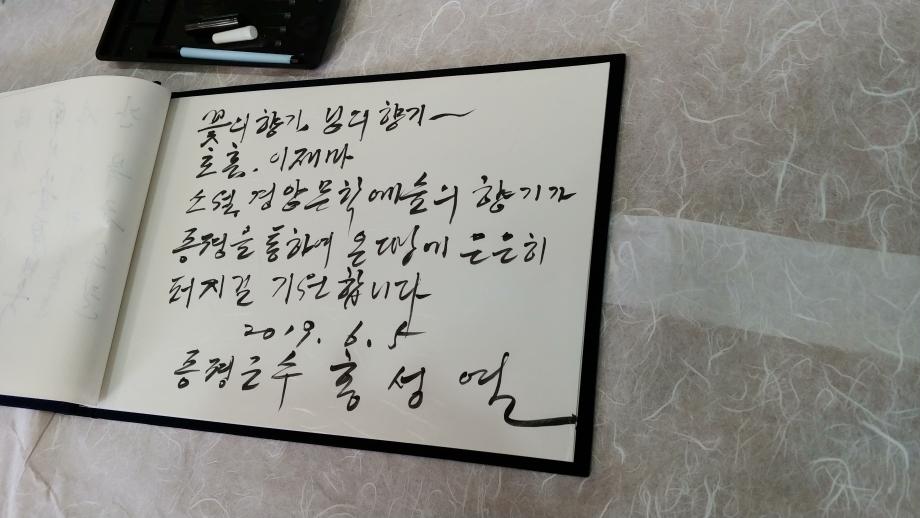 꽃의 향기, 님의 향기~
토흠. 이재마
소설, 경암문학예술의 향기가
증평을 통하여 온 땅에 은은히
퍼지길 기원합니다
2019. 6. 5
증평군수 홍성열